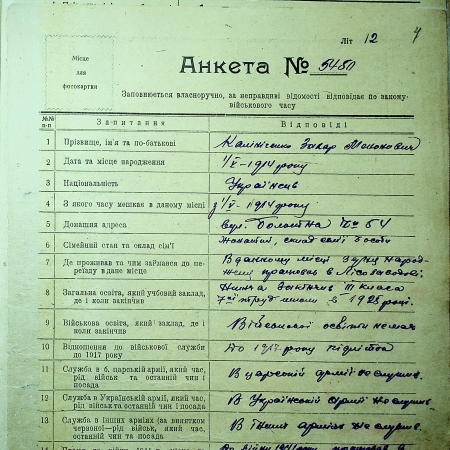 Літ 12 4
Місце
для
фотокартки
Анкета № 5480
Заповнюється власноручно, за неправдиві відомості відповідає по закому-
військового часу
№№
п-п
Запитання
Відповіді
1 Прізвище, ім'я та по-батькові Калініченко Захар
2 Дата та місце народження 1/V-1914 року
3 Національність Українець
4 З якого часу мешкав в даному місці з 1/V-1914 року
5 Домашня адреса вул. Болотна № 64
6 Сімейний стан та склад сім'ї жонатий, склад сем'ї
7 Де проживав та чим займався до пе-
реїзду в дане місце
В даному місці з дня народ-
ження працював в Лісозаводі
8 Загальна освіта, який учбовий заклад,
де і коли закінчив
Нижча закінчив III класа
7 школи в 1925 році.
9 Військова освіта, який заклад, де
і коли закінчив
Військової освіти немає
10 Відношення до військової служби
до 1917 року
До 1917 року підліток
11 Служба в б. царській армії, який час,
рід військ та останній чин і
посада
В царській армії не служив.
12 Служба в Українській армії, який час,
рід військ та останній чин і посада
В Українській армії не служив
13 Служба в інших арміях (за винятком
червоної—рід військ, який час,
останній чин та посада
В інших арміях не служив.
14